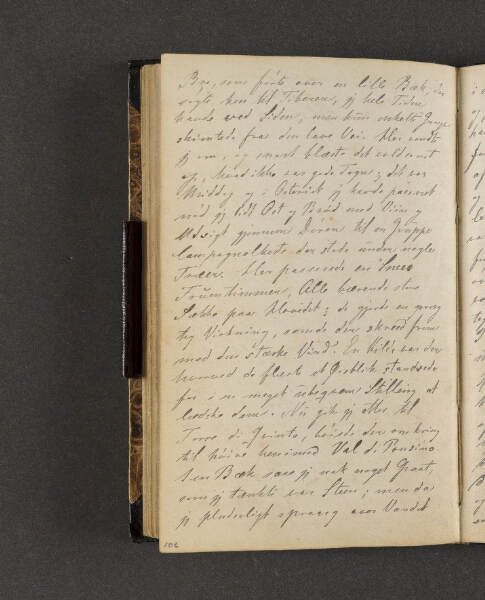 Bro, som förte over en lille Bæk, der
søgte hen til Tiberen, jg hele Tiden
havde ved Siden; men kun enkelte Gange
skimtede fra den lave Vei. Her vendte
jg om, og snart blæste det voldsomt
op, hvad ikke var gode Tegn; det var
Middag og i Osteriet jg havde passeret
nød jg lidt Ost og Bröd med Viin og
Udsigt gjennem Dören til en Gruppe
Campagnolheste der stode under nogle
Træer. Her passerede en Snees
Fruentimmer, Alle bærende store
Sække paa Hovedet; de gjorde en
Virkning, som de der skred frem
mod den stærke Vind. En Kilde var der
hvorved de fleste et Øieblik standsede
for i en meget ubeqvem Stilling at
ledske dem. Nu gik jg atter til
Torre di Quinto, böiede der omkring
til höire henimod Val di Pussino.
I en Bæk saae jg nok noget Graat,
som jg tænkte var Steen; men da
jg pludseligt sprang over Vandet